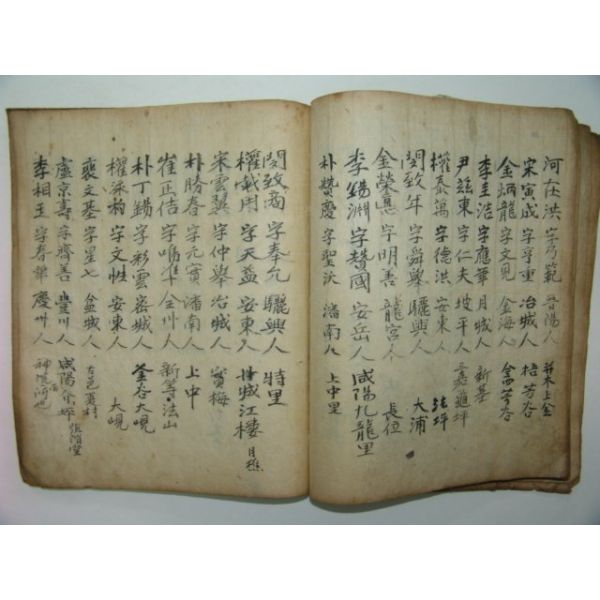 河在洪 字 範 晋陽人 幷木上金
宋寅成 字亨重 冶城人 梧芳谷
金炳龍 字文見 金海人 芳谷
李圭浩 字應華 月城人 新基
尹玆東 字仁夫 坡平人 嘉進坪
權泰萬 字德洪 安東人 法坪
閔致年 字舜擧 驪興人 大浦
金榮 字明善 龍宮人 長位
李錫洲 字贊國 安岳人 咸陽九龍里
朴贊慶 字聖汝 潘南人 上中里
閔致商 字奉允 驪興人 特里
權載用 字天益 安東人 丹城江樓
宋雲翼 字仲擧 冶城人 梅
朴勝春 字元賓 潘南人 上中
崔正佶 字鳴 全州人 新等法山
朴丁錫 字彩雲 密城人 釜谷大峴
權 字文性 安東人 大峴
裵文基 字星七 盆城人 古邑
盧京壽 字齊善 豊川人 咸陽 坪
李相玉 字春 慶州人